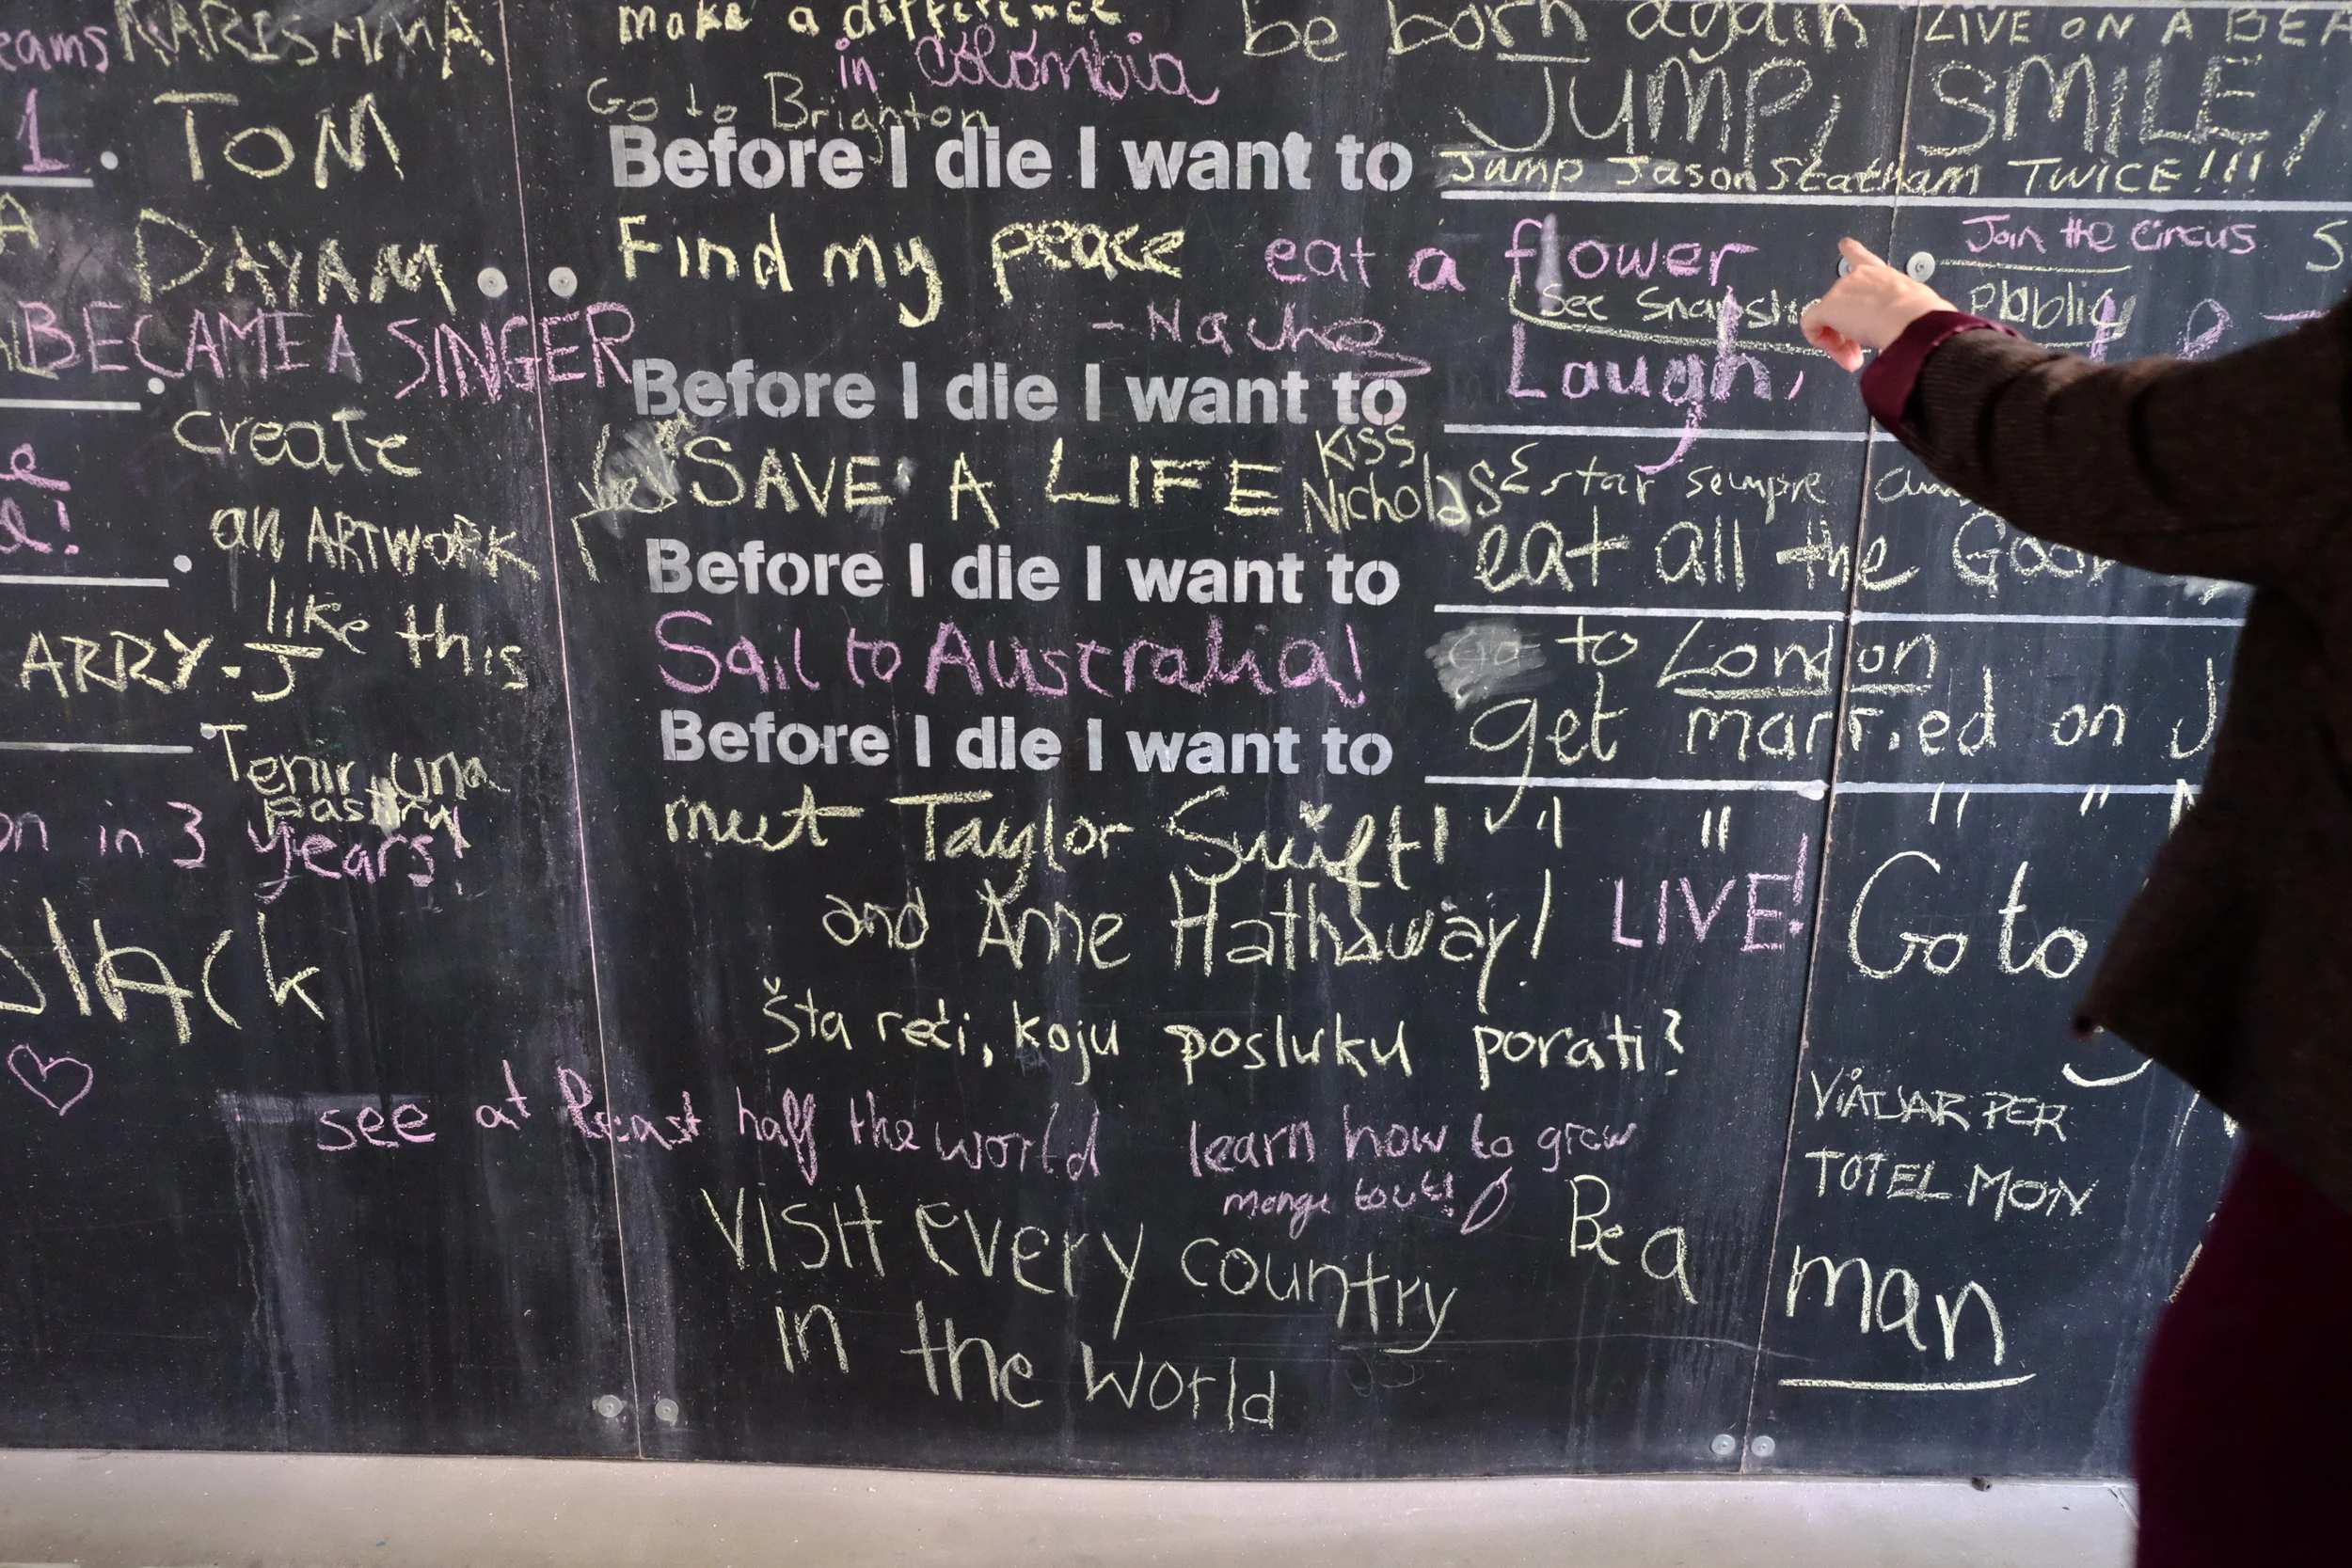 KARISHMA
1. TOM
DAYAM
BECAME A SINGER
create
an ARTWORK
like this
ARRY.J
Tenir una
in 3 years!
make a difference
in Colombia
Go to Brighton
be born again
LIVE ON A
JUMP, SMILE,
Before I die I want to Jump Jason Statham TWICE!!!
Find my peace eat a flower
Join the circus
See
- Nacho
Before I die I want to Laugh,
yes SAVE A LIFE Kiss
Nicholas
Estar sempre
Before I die I want to eat all the
Sail to Australia! Go to London
Before I die I want to get married on J
meet Taylor Swift!
and Anne Hathaway! LIVE!
Go to
Šta reći, koju posluku porati?
see at least half the world learn how to grow
mange tout!
VIATJAR PER
TOT EL MON
VISIT EVERY country
in the world
Be a man